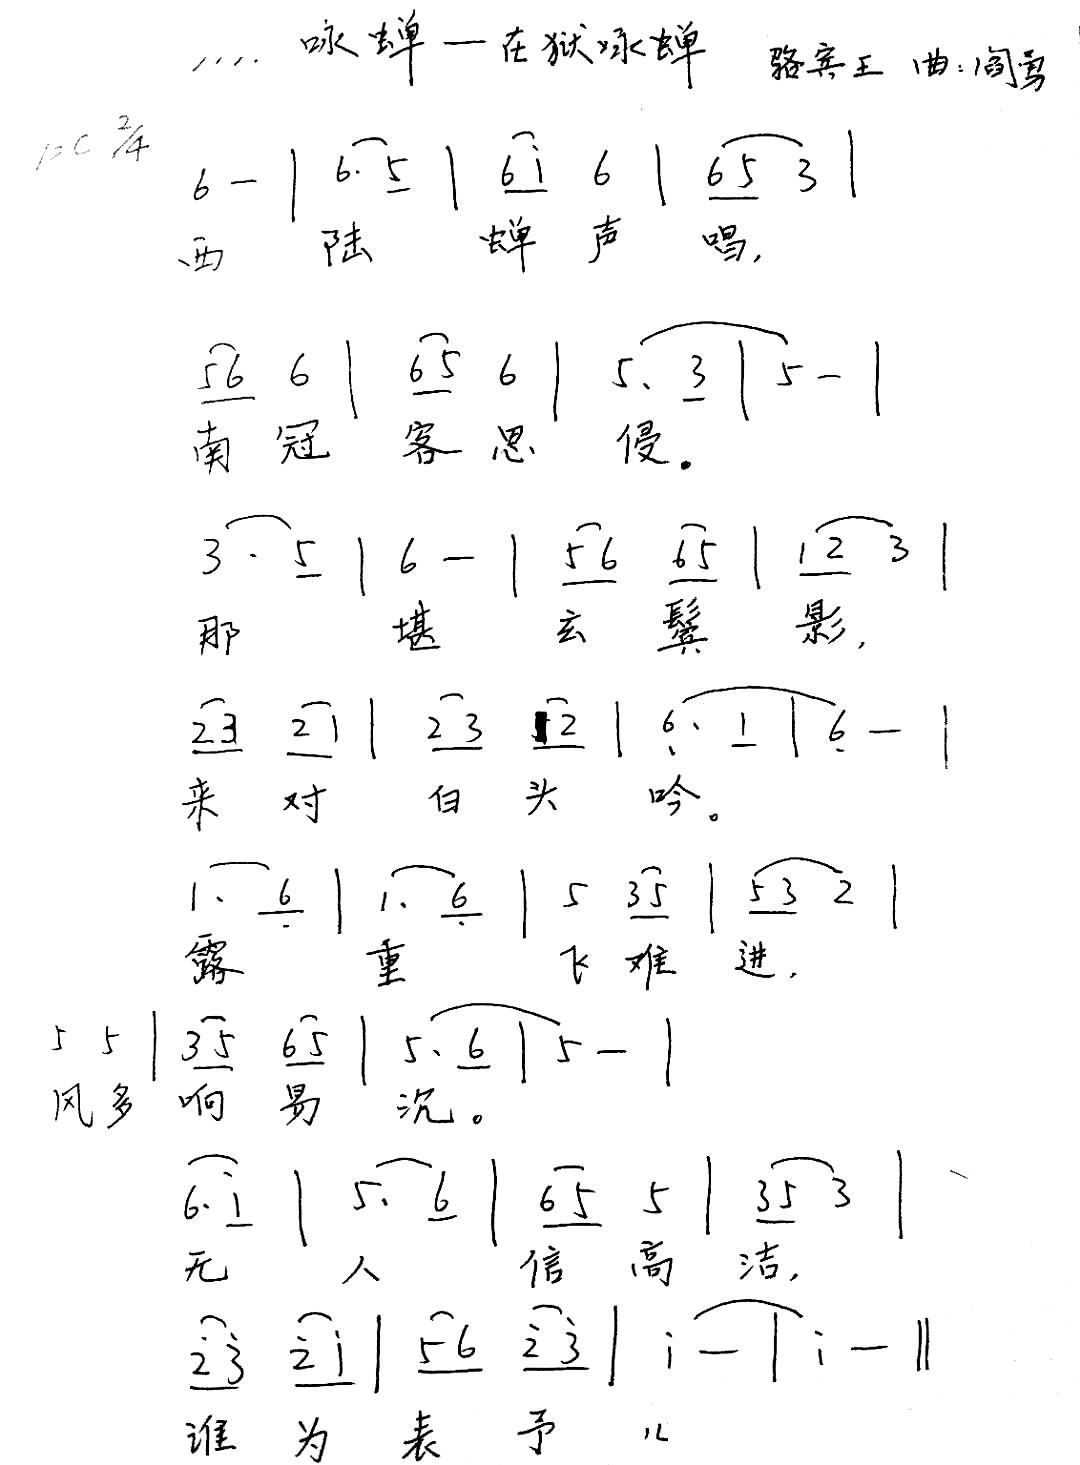 .... 咏蝉一在狱咏蝉 骆宾王 曲:阎勇
1=C 2/4
6 - | 6. 5 | 6 i 6 | 6 5 3 |
西 陆 蝉 声 唱,
5 6 6 | 6 5 6 | 5. 3 | 5 - |
南 冠 客 思 侵。
3 · 5 | 6 - | 5 6 6 5 | 1 2 3 |
那 堪 玄 鬓 影,
2 3 2 1 | 2 3 1 2 | 6. 1 | 6 - |
来 对 白 头 吟。
1. 6 | 1. 6 | 5 3 5 | 5 3 2 |
露 重 飞 难 进,
5 5 | 3 5 6 5 | 5. 6 | 5 - |
风 多 响 易 沉。
6. i | 5. 6 | 6 5 5 | 3 5 3 |
无 人 信 高 洁,
2 3 2 i | 5 6 2 3 | i - | i - ‖
谁 为 表 予